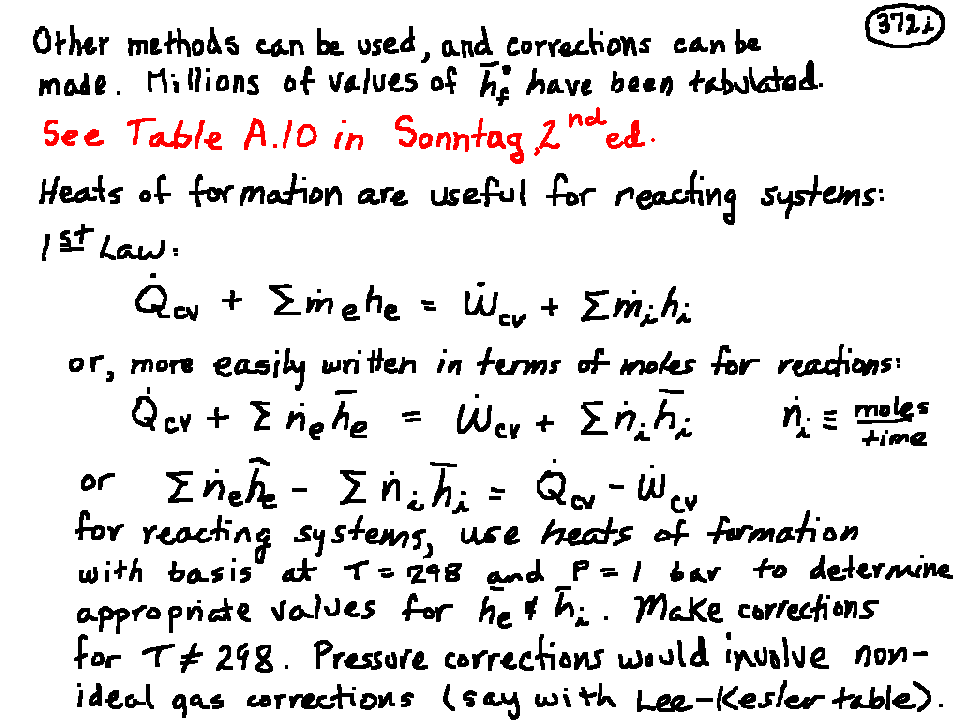 372i
Other methods can be used, and corrections can be
made. Millions of values of h̄°f have been tabulated.
See Table A.10 in Sonntag, 2nd ed.
Heats of formation are useful for reacting systems:
1st Law:
Q̇cv + Σṁehe = Ẇcv + Σṁihi
or, more easily written in terms of moles for reactions:
Q̇cv + Σṅeh̄e = Ẇcv + Σṅih̄i ṅi ≡ moles/time
or Σṅeh̄e - Σṅih̄i = Q̇cv - Ẇcv
for reacting systems, use heats of formation
with basis at T = 298 and P = 1 bar to determine
appropriate values for h̄e & h̄i. Make corrections
for T ≠ 298. Pressure corrections would involve non-
ideal gas corrections (say with Lee-Kesler table).